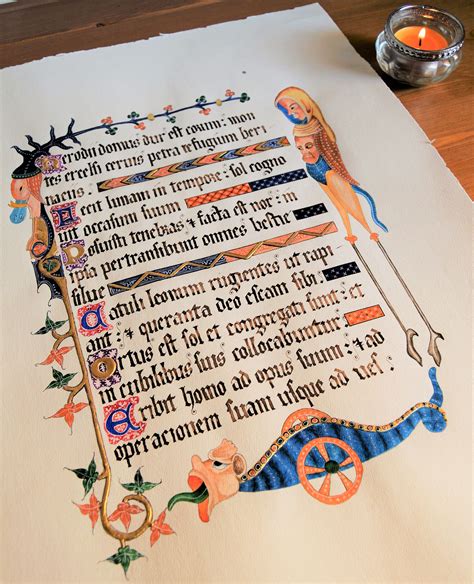 Erodii domus dux est eorum: mon
tes excelsi ceruis petra refugium heri
naciis.
Fecit lunam in tempore: sol cogno
uit occasum suum.
Posuisti tenebras & facta est nox: in
ipsa pertransibunt omnes bestie
silue.
Catuli leonum rugientes ut rapi
ant: & querant a deo escam sibi.
Ortus est sol et congregati sunt: et
in cubilibus suis collocabuntur.
Exibit homo ad opus suum: & ad
operacionem suam usque ad ues: